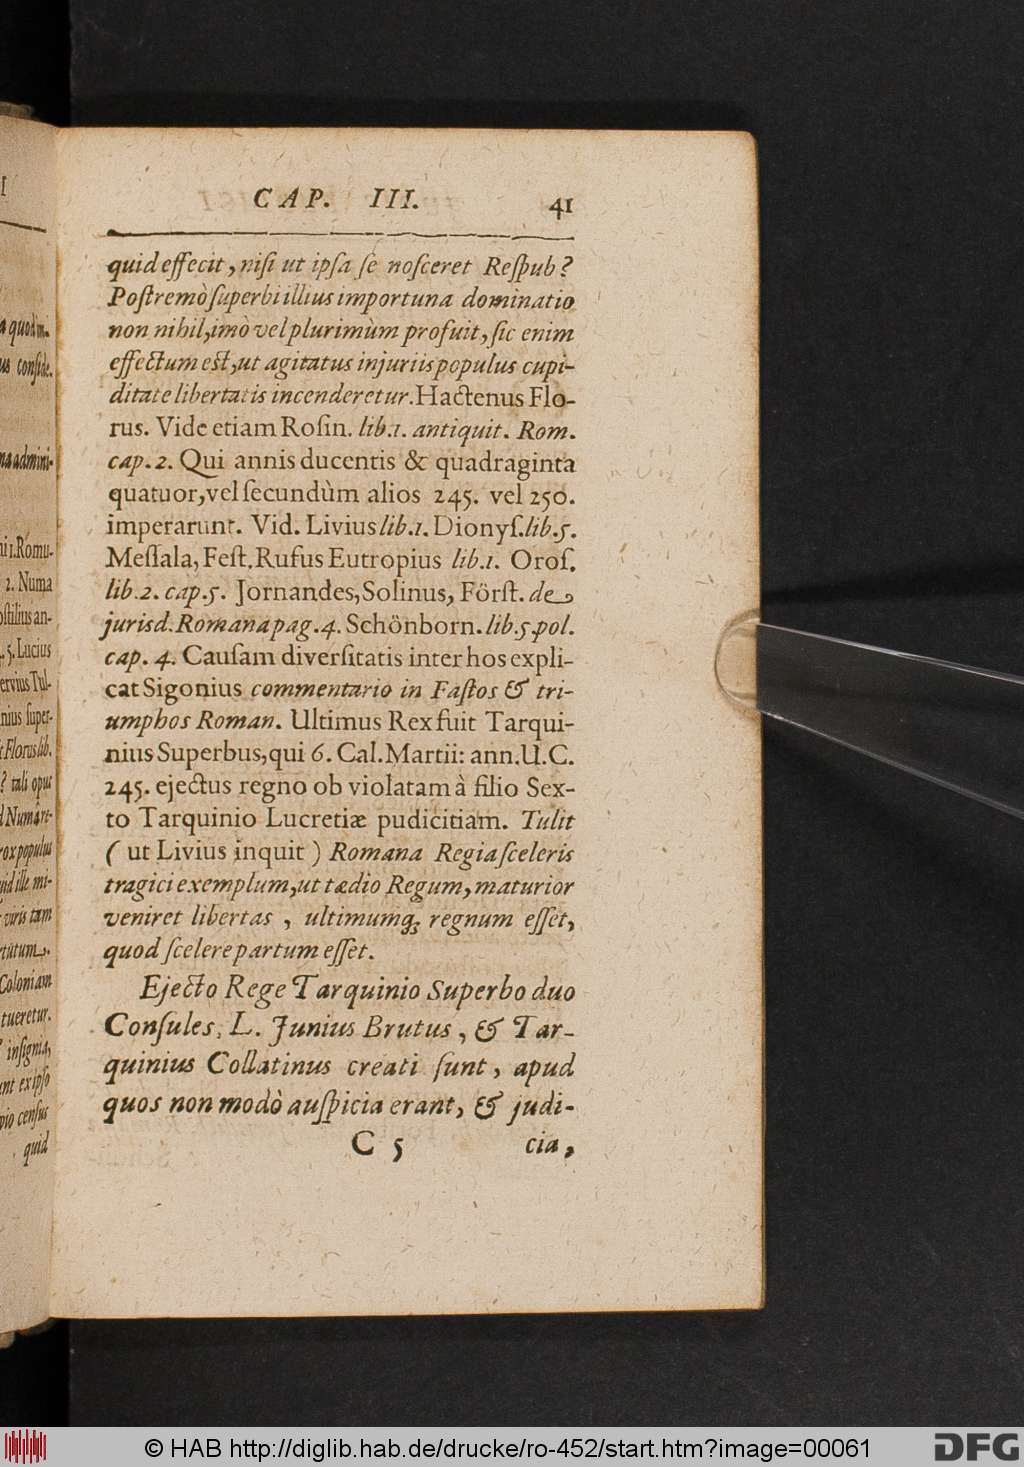 CAP. III. 41
quid effecit, niſi ut ipſa ſe noſceret Reſpub?
Poſtremò ſuperbi illius importuna dominatio
non nihil, imò vel plurimùm profuit, ſic enim
effectum eſt, ut agitatus injuriis populus cupi-
ditate libertatis incenderetur. Hactenus Flo-
rus. Vide etiam Roſin. lib. 1. antiquit. Rom.
cap. 2. Qui annis ducentis & quadraginta
quatuor, vel ſecundùm alios 245. vel 250.
imperarunt. Vid. Livius lib. 1. Dionyſ. lib. 5.
Meſſala, Feſt. Rufus Eutropius lib. 1. Oroſ.
lib. 2. cap. 5. Jornandes, Solinus, Förſt. de
jurisd. Romana pag. 4. Schönborn. lib. 5. pol.
cap. 4. Cauſam diverſitatis inter hos expli-
cat Sigonius commentario in Faſtos & tri-
umphos Roman. Ultimus Rex fuit Tarqui-
nius Superbus, qui 6. Cal. Martii: ann. U.C.
245. ejectus regno ob violatam à filio Sex-
to Tarquinio Lucretiæ pudicitiam. Tulit
( ut Livius inquit ) Romana Regia ſceleris
tragici exemplum, ut tædio Regum, maturior
veniret libertas , ultimumq; regnum eſſet,
quod ſcelere partum eſſet.
Ejecto Rege Tarquinio Superbo duo
Conſules, L. Junius Brutus, & Tar-
quinius Collatinus creati ſunt, apud
quos non modò auſpicia erant, & judi-
C 5 cia,
a quod im-
us conſide.
na admini-
ni 1. Romu-
2. Numa
oſtilius an-
5. Lucius
ervius Tul-
nius ſuper-
Florus lib.
? tali opus
d Numâ re-
rox populus
uid ille mi-
viris tam
rtutum.
Coloniam
tueretur.
inſignia,
unt ex ipſo
pio cenſus
quid
© HAB http://diglib.hab.de/drucke/ro-452/start.htm?image=00061
DFG